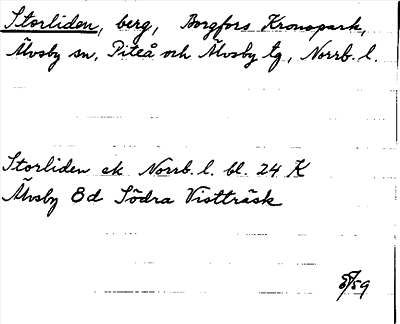 Storliden, berg, Borgfors Kronopark,
Älvsby sn, Piteå och Älvsby tg, Norrb. l.
Storliden ek. Norrb. l. bl. 24 K
Älvsby 8d Södra Vistträsk